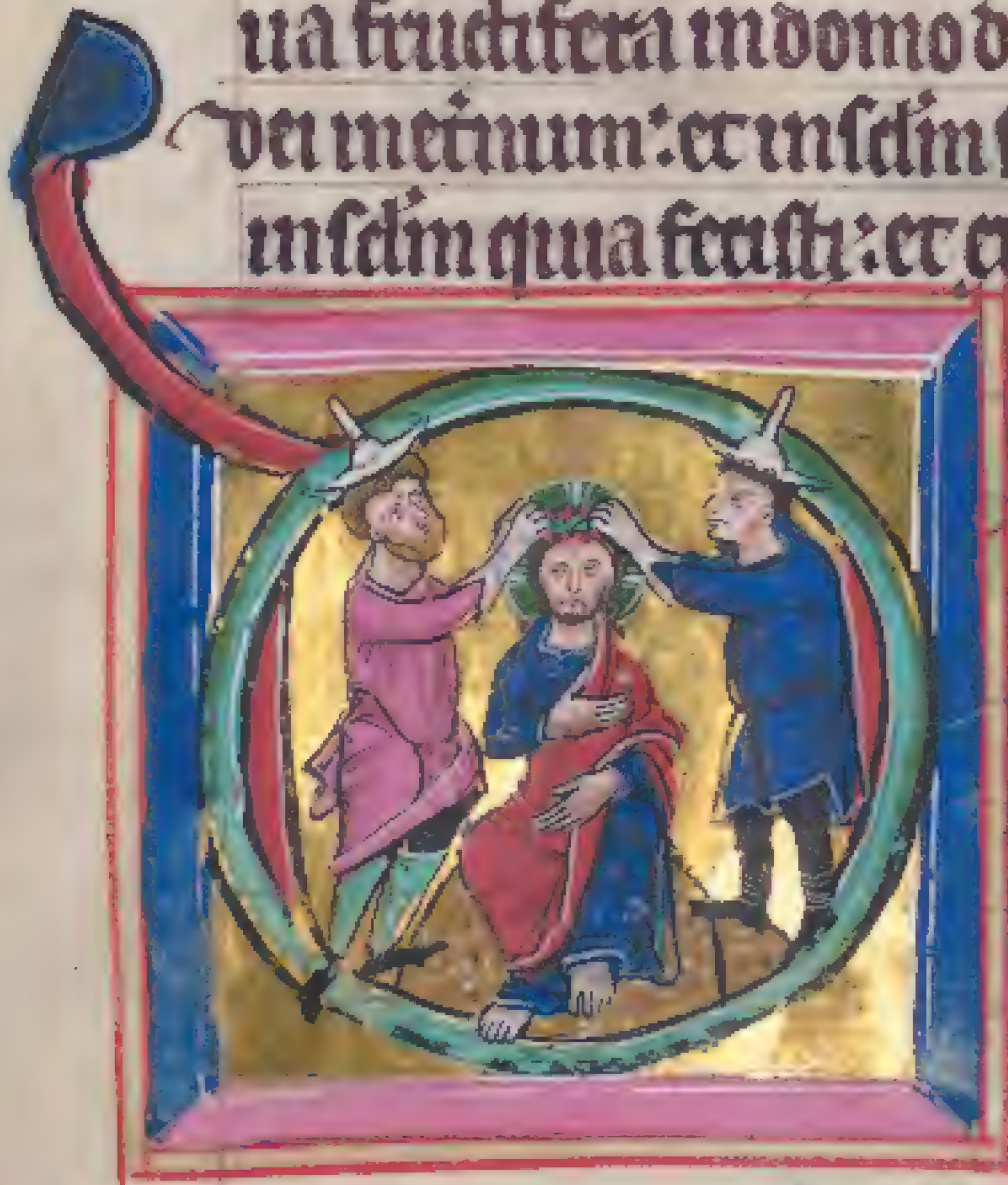 ua fructifera in domo d
dei mei in eternum: et in sclm s
in sclm quia fecisti: et e
D